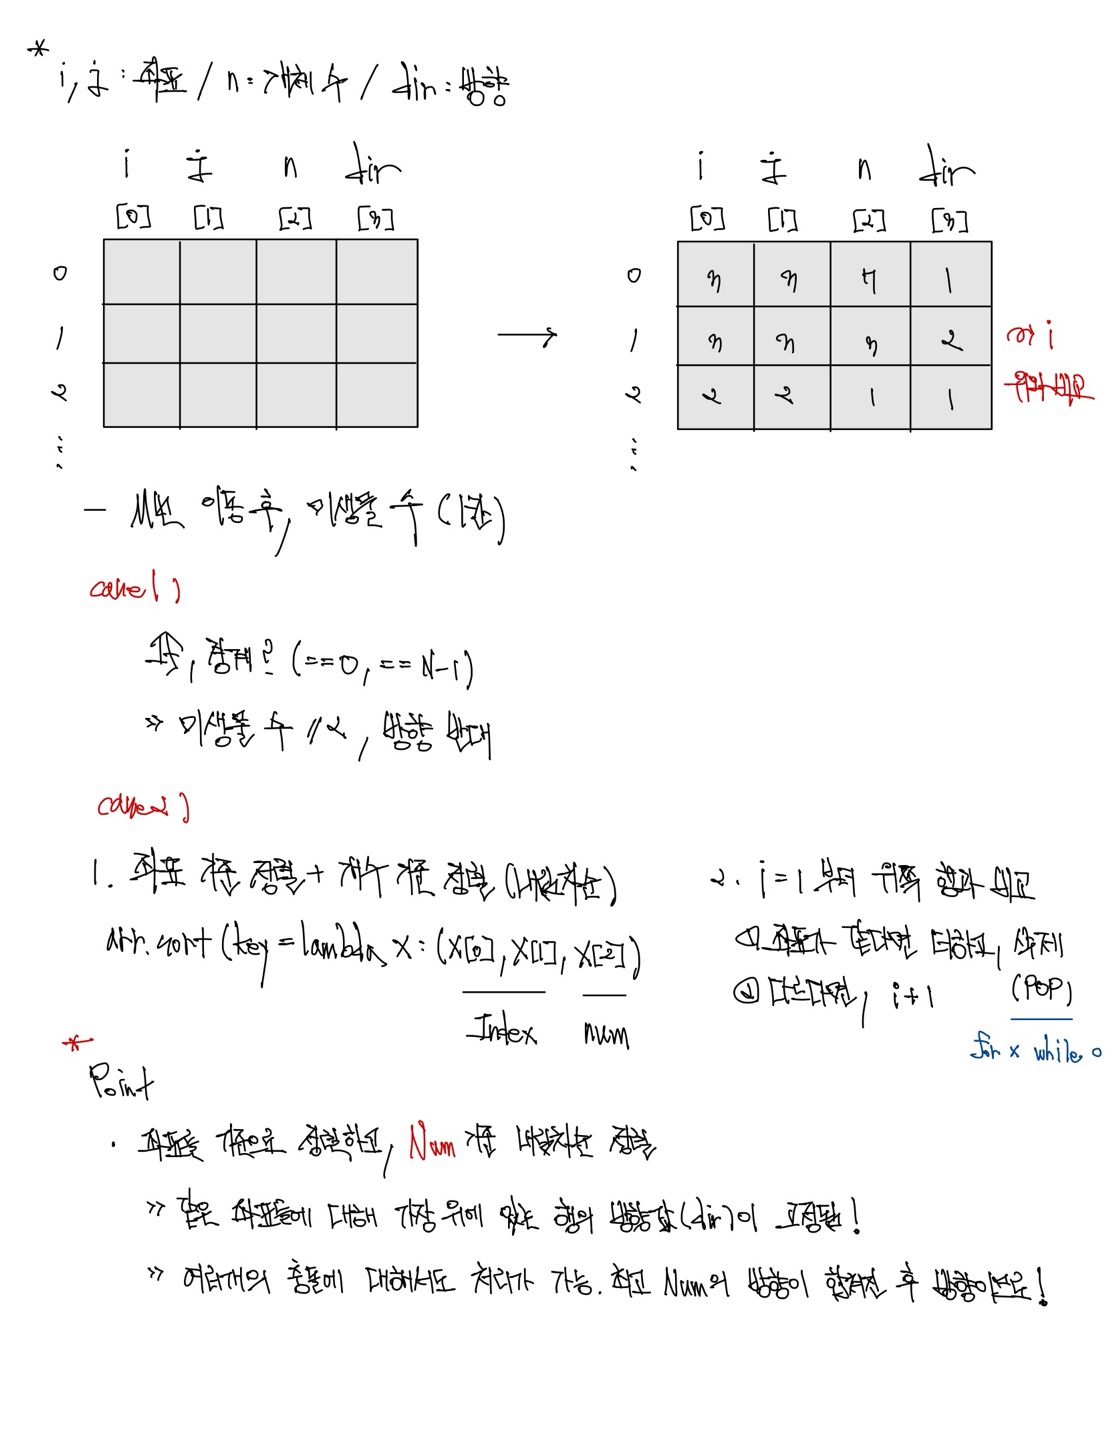 * i, j : 좌표 / n : 개체 수 / dir : 방향
i j n dir
[0] [1] [2] [3]
0
1
2
⋮
→
i j n dir
[0] [1] [2] [3]
0 3 3 7 1
1 3 3 3 2 → i
2 2 2 1 1 위와 비교
⋮
- M번 이동 후, 미생물 수 (1칸)
case 1)
경계? (==0, == N-1)
» 미생물 수 //2, 방향 반대
case 2)
1. 좌표 기준 정렬 + 개수 기준 정렬 (내림차순)
arr.sort (key = lambda x : (x[0], x[1], x[2])
Index num
2. i = 1 부터 위쪽 항과 비교
① 좌표가 같다면 더하고, 삭제 (POP)
② 다르다면, i+1
for x while o
* Point
· 좌표를 기준으로 정렬하고, Num 기준 내림차순 정렬
» 같은 좌표들에 대해 가장 위에 있는 행의 방향값(dir)이 고정됨!
» 여러개의 충돌에 대해서도 처리가 가능. 최고 Num의 방향이 합쳐진 후 방향이므로!